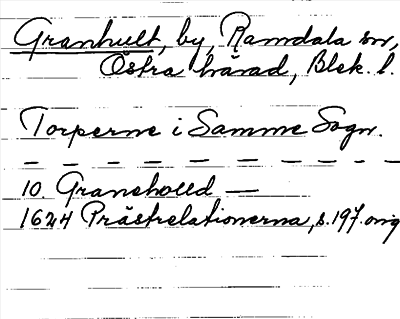 Granhult, by, Ramdala sn,
Östra härad, Blek. l.
Torperne i Samme Sogn.
10. Graneholld —
1624 Prästrelationerna, s. 197. orig